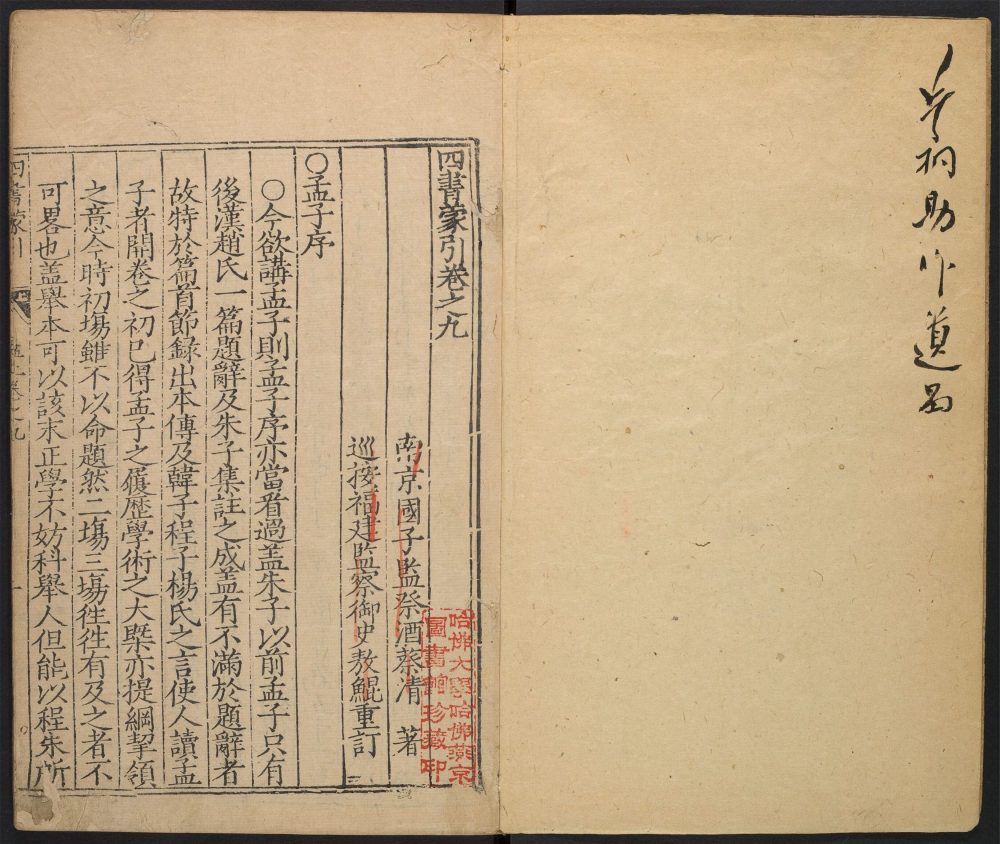 助 道
四書蒙引卷之九
南京國子監祭酒蔡清 著
巡按福建監察御史敖鯤重訂
○孟子序
○今欲講孟子則孟子序亦當看過盖朱子以前孟子只有
後漢趙氏一篇題辭及朱子集註之成盖有不滿於題辭者
故特於篇首節録出本傳及韓子程子楊氏之言使人讀孟
子者開卷之初已得孟子之履歷學術之大槩亦提綱挈領
之意今時初塲雖不以命題然二塲三塲徃徃有及之者不
可畧也盖舉本可以該末正學不妨科舉人但能以程朱所
四書蒙引
孟上卷之九
一
哈佛大學哈佛燕京
圖書館珍藏印